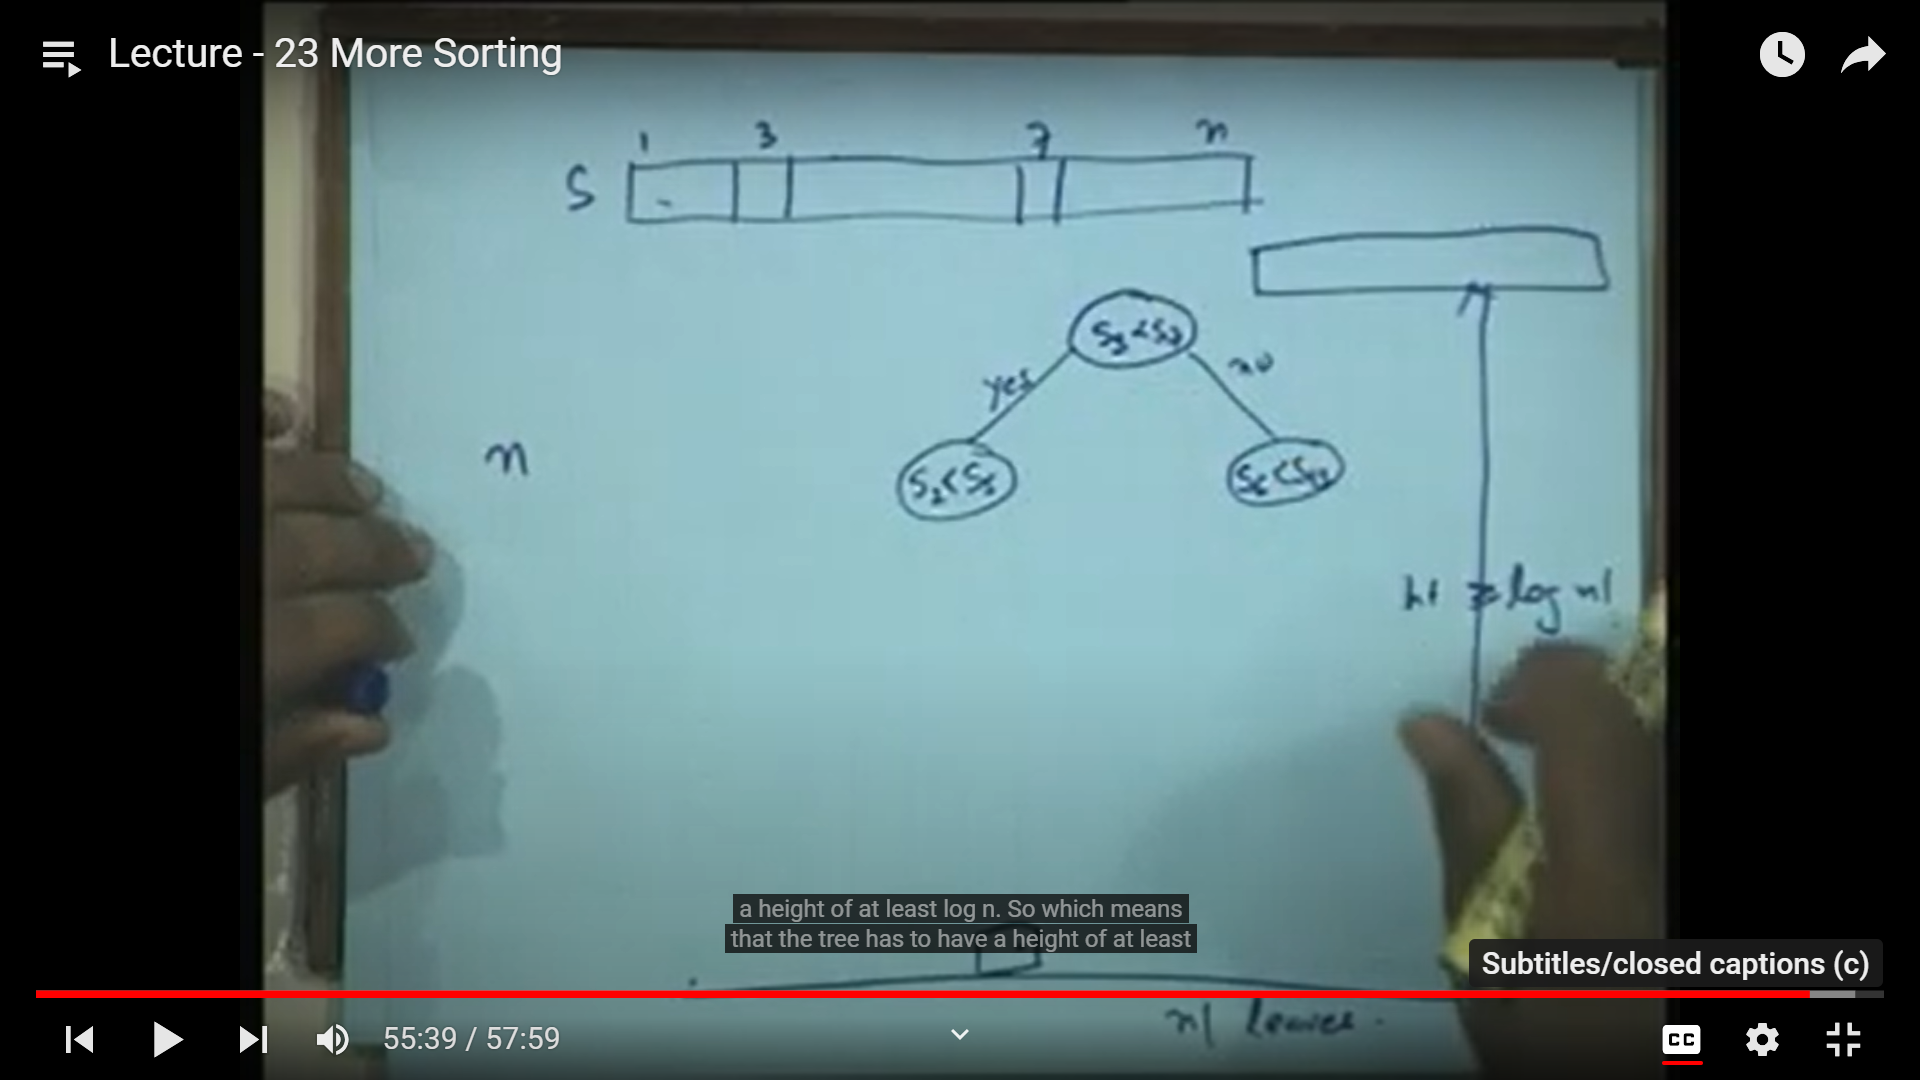 Lecture - 23 More Sorting
1 3 7 n
S
S3 < S7
yes no
n
S2 < S5
ht ≥ log n!
a height of at least log n. So which means
that the tree has to have a height of at least
Subtitles/closed captions (c)
n! leaves.
55:39 / 57:59
CC